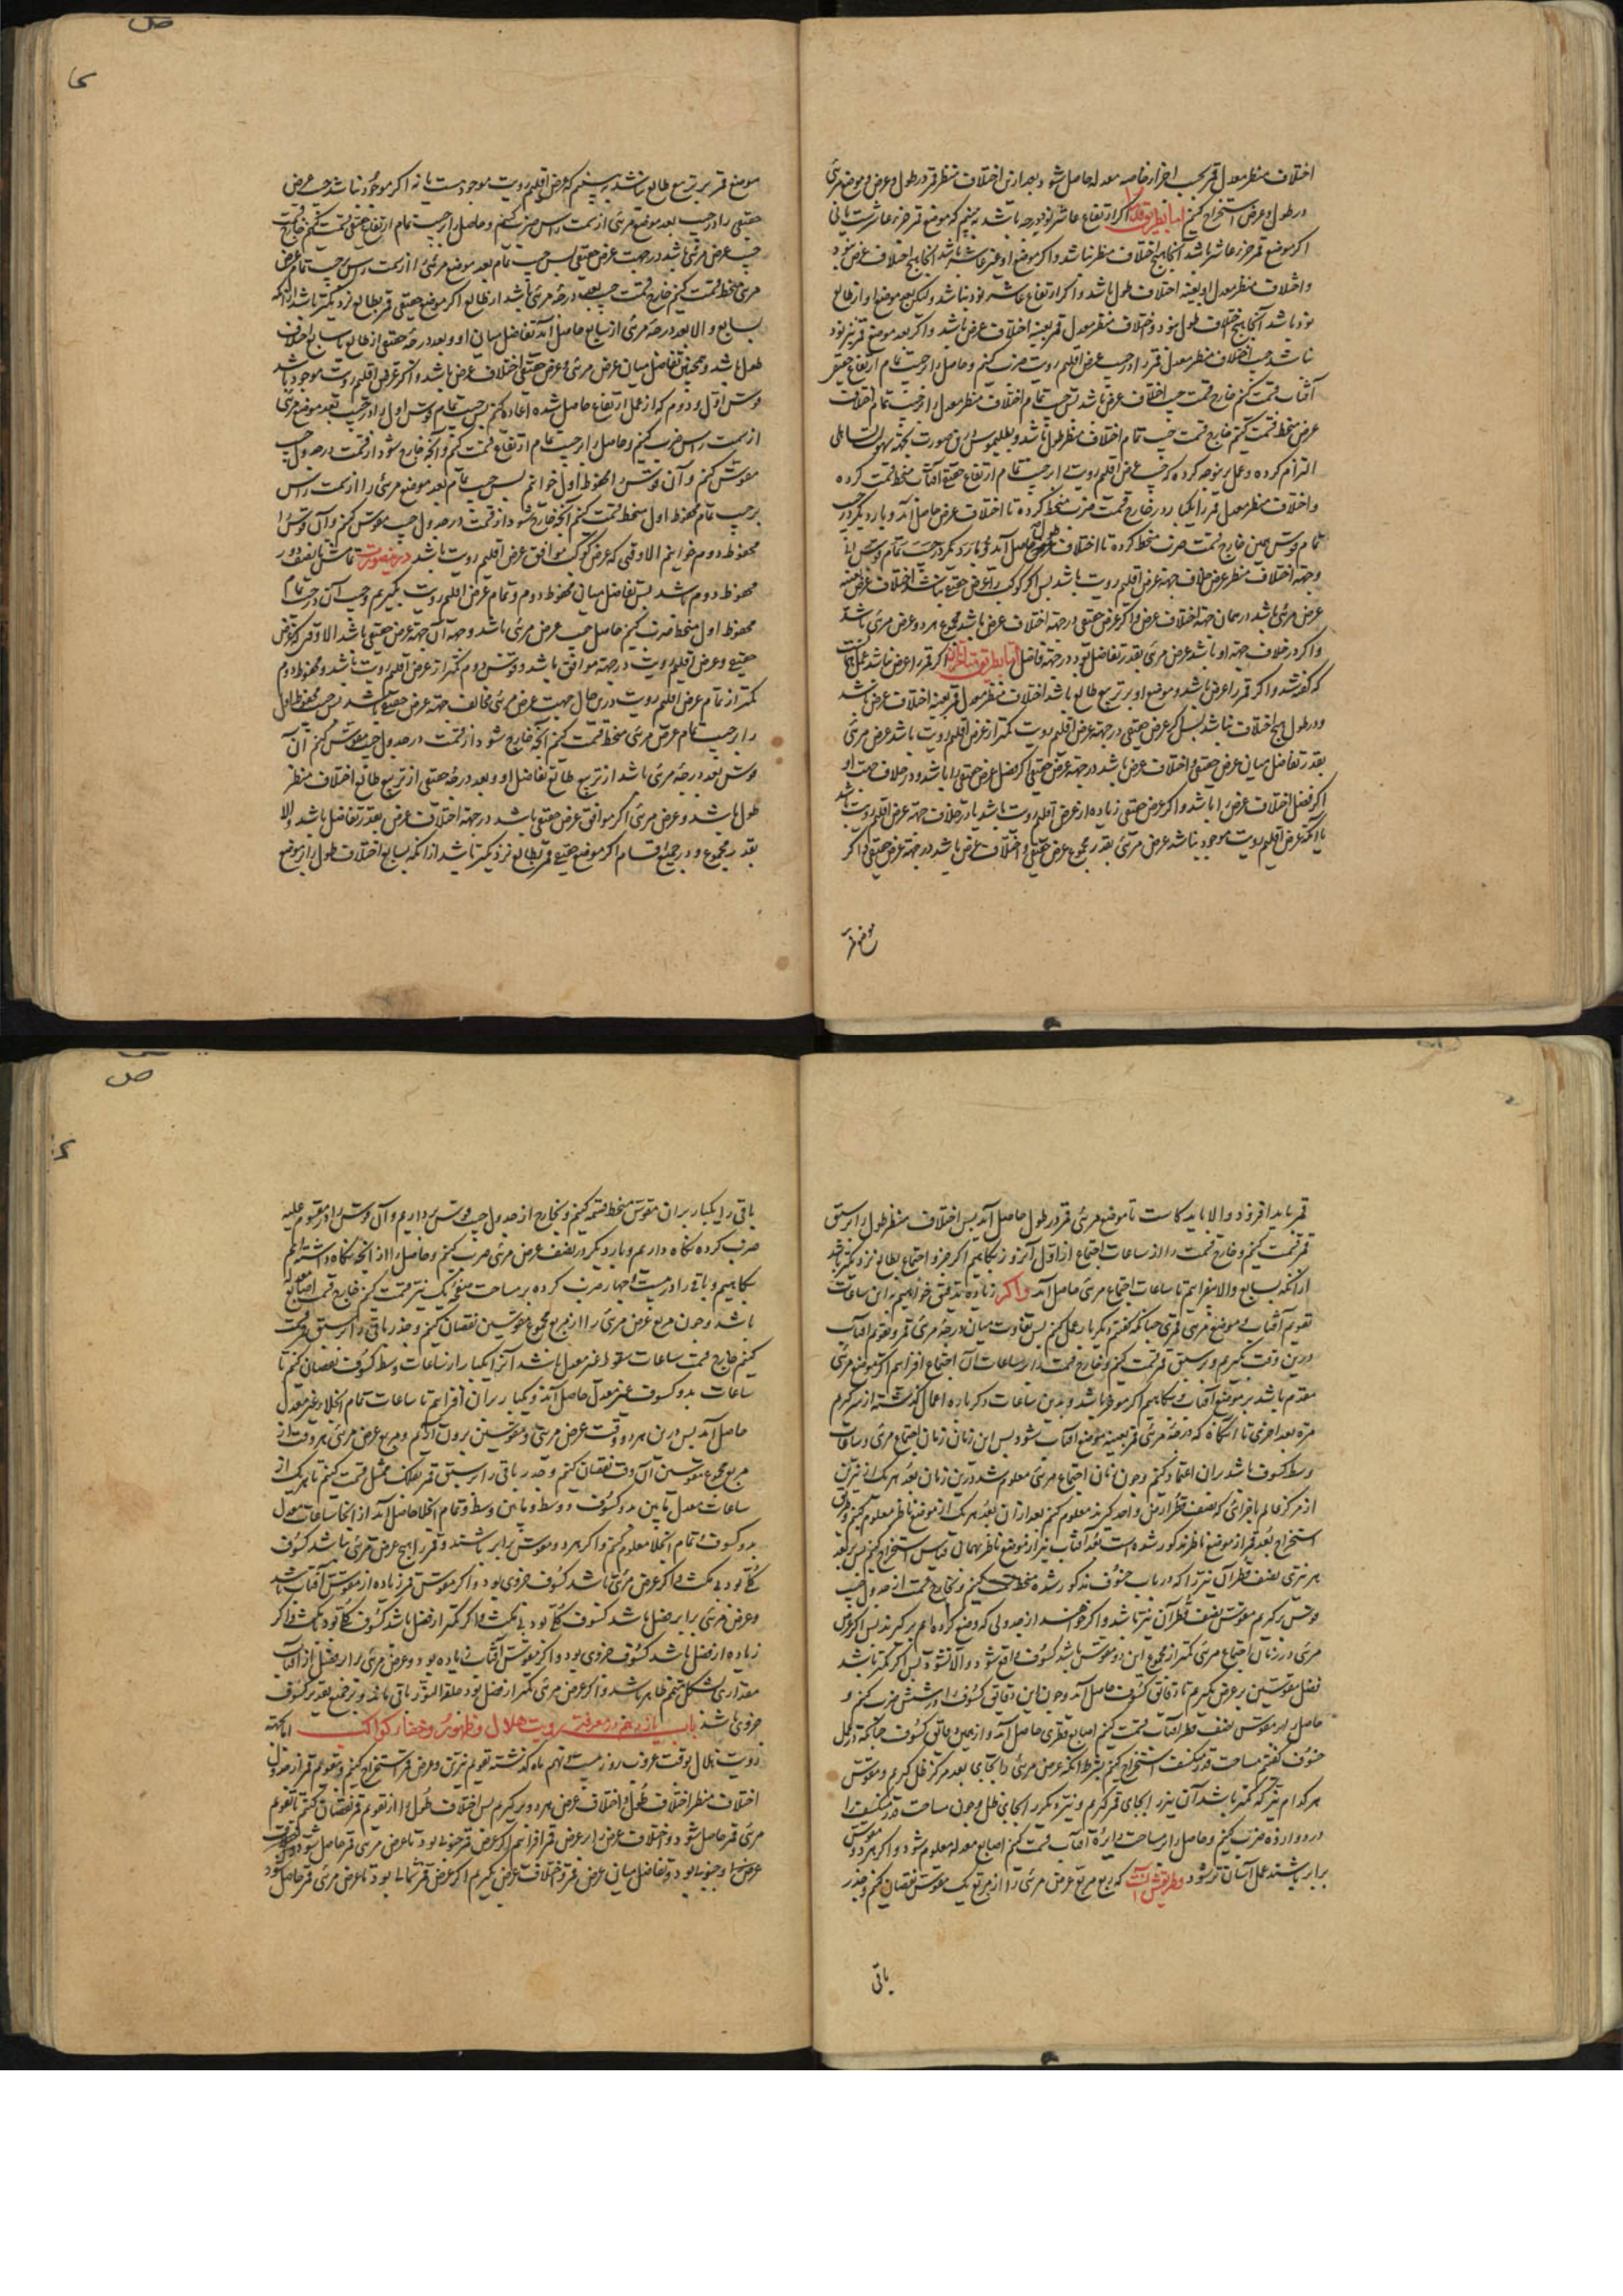 اختلاف منظر معدل قمر بحسب اجزاء خاصه معدله حاصل شود و بعد ازین اختلاف منظر قمر در طول و عرض و موضع مرئی
در طول و عرض استخراج کنیم اما بطریق قدما اگر ارتفاع عاشر نود درجه باشد به بینیم که موضع قمر جزء عاشرست یا نی
اگر موضع قمر جزء عاشر باشد آنجا هیچ اختلاف منظر نباشد و اگر موضع او غیر عاشر باشد آنجا هیچ اختلاف عرض نبود
و اختلاف منظر معدل او بعینه اختلاف طول باشد و اگر ارتفاع عاشر نود نباشد ولیکن بعد موضع او از طالع
نود باشد آنجا هیچ اختلاف طول نبود و اختلاف منظر معدل قمر بعینه اختلاف عرض باشد و اگر بعد موضع قمر نیز نود
نباشد جیب اختلاف منظر معدل قمر را در جیب عرض اقلیم رویت ضرب کنیم و حاصل را بر جیب تمام ارتفاع حقیقی
آفتاب قسمت کنیم خارج قسمت جیب اختلاف عرض باشد پس جیب تمام اختلاف منظر معدل را بر جیب تمام اختلاف
عرض منحط قسمت کنیم خارج قسمت جیب تمام اختلاف منظر طول باشد و بطلیموس درین صورت بجهة سهولت تساهلی
التزام کرده و عمل برینوجه کرده که جیب عرض اقلیم رویت را بر جیب تمام ارتفاع حقیقی آفتاب منحط قسمت کرده
و اختلاف منظر معدل قمر را یکبار در خارج قسمت ضرب منحط کرده تا اختلاف عرض حاصل آمد و بار دیگر در جیب
تمام قوس همین خارج قسمت ضرب منحط کرده تا اختلاف طول حاصل آمد و بار دیگر در جیب تمام قوس
و جهة اختلاف منظر عرض خلاف جهة عرض اقلیم رویت باشد پس اگر کوکب را عرض حقیقی نباشد اختلاف عرض بعینه
عرض مرئی باشد در همان جهة اختلاف عرض و اگر عرض حقیقی در جهة اختلاف عرض باشد مجموع هردو عرض مرئی باشد
و اگر در خلاف جهة او باشد عرض مرئی بقدر تفاضل بود در جهة فاضل اما بطریق متاخران اگر قمر را عرض نباشد عمل همانست
که گفته شد و اگر قمر را عرض باشد و موضع او بر تربیع طالع باشد اختلاف منظر معدل قمر بعینه اختلاف عرض باشد
و در طول هیچ اختلاف نباشد پس اگر عرض حقیقی در جهة عرض اقلیم رویت کمتر از عرض اقلیم رویت باشد عرض مرئی
بقدر تفاضل میان عرض حقیقی و اختلاف عرض باشد در جهة عرض حقیقی اگر فضل عرض حقیقی را باشد و در خلاف جهت او
اگر فضل اختلاف عرض را باشد و اگر عرض حقیقی زیاده از عرض اقلیم رویت باشد یا در خلاف جهة عرض اقلیم رویت باشد
یا آنکه عرض اقلیم رویت موجود نباشد عرض مرئی بقدر مجموع عرض حقیقی و اختلاف عرض باشد در جهة عرض حقیقی و اگر
موضع قمر
ص
موضع قمر بر تربیع طالع نباشد به بینیم که عرض اقلیم رویت موجودست یا نه اگر موجود نباشد جیب عرض
حقیقی را در جیب بعد موضع مرئی از سمت راس ضرب کنیم و حاصل را بر جیب تمام ارتفاع حقیقی قسمت کنیم خارج قسمت
جیب عرض مرئی باشد در جهت عرض حقیقی پس جیب تمام بعد موضع مرئی را از سمت راس بر جیب تمام عرض
مرئی منحط قسمت کنیم خارج قسمت جیب بعد درجهٔ مرئی باشد از طالع اگر موضع حقیقی قمر بطالع نزدیکتر باشد از آنکه
بسابع و الا بعد درجهٔ مرئی از سابع حاصل آمد تفاضل میان او و بعد درجهٔ حقیقی از طالع یا سابع اختلاف
طول باشد و همچنین تفاضل میان عرض مرئی و عرض حقیقی اختلاف عرض باشد و اگر عرض اقلیم رویت موجود باشد
قوس اول و دوم که از عمل ارتفاع حاصل شده اعاده کنیم پس جیب تمام قوس اول را در جیب بعد موضع مرئی
از سمت راس ضرب کنیم و حاصل را بر جیب تمام ارتفاع قسمت کنیم و آنچه خارج شود از قسمت در جدول جیب
مقوس کنیم و آن قوس را محفوظ اول خوانیم پس جیب تمام بعد موضع مرئی را از سمت راس
بر جیب تمام محفوظ اول منحط قسمت کنیم آنچه خارج شود از قسمت در جدول جیب مقوس کنیم و آن قوس را
محفوظ دوم خوانیم الا وقتی که عرض کوکب موافق عرض اقلیم رویت باشد درینصورت تمامش تا نصف دور
محفوظ دوم باشد پس تفاضل میان محفوظ دوم و تمام عرض اقلیم رویت بگیریم و جیب آن در جیب تمام
محفوظ اول منحط ضرب کنیم حاصل جیب عرض مرئی باشد و جهة آن جهة عرض حقیقی باشد الا وقتی که عرض
حقیقی و عرض اقلیم رویت در جهة موافق باشد و قوس دوم کمتر از عرض اقلیم رویت باشد و محفوظ دوم
کمتر از تمام عرض اقلیم رویت درین حال جهت عرض مرئی مخالف جهة عرض حقیقی باشد پس جیب محفوظ اول
را بر جیب تمام عرض مرئی منحط قسمت کنیم آنچه خارج شود از قسمت در جدول جیب مقوس کنیم آن
قوس بعد درجهٔ مرئی باشد از تربیع طالع تفاضل او و بعد درجهٔ حقیقی از تربیع طالع اختلاف منظر
طول باشد و عرض مرئی اگر موافق عرض حقیقی باشد در جهة اختلاف عرض بقدر تفاضل باشد و الا
بقدر مجموع و در جمیع اقسام اگر موضع حقیقی قمر بطالع نزدیکتر باشد از آنکه بسابع اختلاف طول را بر موضع
قمر باید افزود و الا باید کاست تا موضع مرئی قمر در طول حاصل آید پس اختلاف منظر طول را بر سبق
قمر قسمت کنیم و خارج قسمت را از ساعات اجتماع از اول آنروز بکاهیم اگر جزو اجتماع بطالع نزدیکتر باشد
از آنکه بسابع و الا بیفزاییم تا ساعات اجتماع مرئی حاصل آید و اگر زیاده تدقیق خواهیم باین ساعات
تقویم آفتاب و موضع مرئی قمر چنانکه گفتیم دیگر بار عمل کنیم پس تفاوت میان درجهٔ مرئی قمر و تقویم آفتاب
درین وقت بگیریم و بر سبق قمر قسمت کنیم و خارج قسمت را بر ساعات آن اجتماع افزاییم اگر موضع مرئی
مقدم باشد بر موضع آفتاب و بکاهیم اگر موخر باشد و بدین ساعات دگرباره اعمال گذشته از سر گیریم
مرة بعد اخری تا آنگاه که درجهٔ مرئی قمر بعینه موضع آفتاب شود پس این زمان زمان اجتماع مرئی و ساعات
وسط کسوف باشد بران اعتماد کنیم و چون زمان اجتماع مرئی معلوم شد درین زمان بعد هر یک از نیرین
از مرکز عالم باجزائی که نصف قطر ارض واحد گیرند معلوم کنیم بعد ازان بعد هر یک از موضع ناظر معلوم کنیم و طریق
استخراج بعد قمر از موضع ناظر مذکور شده است بعد آفتاب نیز از موضع ناظر بهمان قیاس استخراج کنیم پس بر بعد
هر نیری نصف قطر آن نیر را که در باب خسوف مذکور شده منحط قسمت کنیم و بخارج قسمت از جدول جیب
قوس برگیریم مقوس نصف قطر آن نیر باشد و اگر خواهند از جدولی که وضع کرده ایم برگیرند پس اگر عرض
مرئی در زمان اجتماع مرئی کمتر از مجموع این دو مقوس باشد کسوف واقع شود و الا نشود پس اگر کمتر باشد
فضل مقوسین بر عرض بگیریم تا دقایق کسوف حاصل آید و چون این دقایق کسوف را در شش ضرب کنیم و
حاصل را بر مقوس نصف قطر آفتاب قسمت کنیم اصابع قطری حاصل آید و از همین دقایق کسوف چنانکه در عمل
خسوف گفتیم مساحت قدر منکسف استخراج کنیم بشرط آنکه عرض مرئی را بجای بعد مرکز ظل گیریم و مقوس
هر کدام نیر که کمتر باشد آن نیر را بجای قمر گیریم و نیر دیگر را بجای ظل و چون مساحت قدر منکسف را
در دوازده ضرب کنیم و حاصل را بر مساحت دایرهٔ آفتاب قسمت کنیم اصابع معدله معلوم شود و اگر هر دو مقوس
برابر باشند عمل آسان تر شود و طریقش آنست که ربع مربع عرض مرئی را از مربع یک مقوس نقصان کنیم و جذر
باقی
ص
باقی را یکبار بران مقوس منحط قسمت کنیم و بخارج از جدول جیب قوس برداریم و آن قوس را در مقسوم علیه
ضرب کرده نگاه داریم و بار دیگر در نصف عرض مرئی ضرب کنیم و حاصل را از آنچه نگاه داشته ایم
بکاهیم و باقی را در بیست و چهار ضرب کرده بر مساحت صفحه یک نیر قسمت کنیم خارج قسمت اصابع معدله
باشد و چون مربع عرض مرئی را از مربع مجموع مقوسین نقصان کنیم و جذر باقی را بر سبق قمر قسمت
کنیم خارج قسمت ساعات سقوط غیر معدل باشد آنرا یکبار از ساعات وسط کسوف نقصان کنیم تا
ساعات بدو کسوف غیر معدل حاصل آید و یکبار بران افزاییم تا ساعات تمام انجلاء غیر معدل
حاصل آید پس درین هر دو وقت عرض مرئی و مقوسین برون آریم و مربع عرض مرئی هر وقت از
مربع مجموع مقوسین آن وقت نقصان کنیم و جذر باقی را بر سبق قمر بفلک ممثل قسمت کنیم تا هر یک از
ساعات معدل ما بین بدو کسوف و وسط و ما بین وسط و تمام انجلا حاصل آید از آنجا ساعات معدل
بدو کسوف و تمام انجلا معلوم کنیم و اگر هر دو مقوس برابر باشند و قمر را هیچ عرض مرئی نباشد کسوف
کلی بود بی مکث و اگر عرض مرئی باشد کسوف جزوی بود و اگر مقوس قمر زیاده از مقوس آفتاب باشد
و عرض مرئی برابر فضل باشد کسوف کلی بود بی مکث و اگر کمتر از فضل باشد کسوف کلی بود با مکث و اگر
زیاده از فضل باشد کسوف جزوی بود و اگر مقوس آفتاب زیاده بود و عرض مرئی برابر فضل از آفتاب
مقداری بشکل متمم ظاهر باشد و اگر عرض مرئی کمتر از فضل بود حلقة النور باقی ماند و برجمیع تقدیر کسوف
جزوی باشد باب یازدهم در معرفت رویت هلال و ظهور و خفاء کواکب اما جهة
رویت هلال بوقت غروب روز بیست و نهم ماه گذشته تقویم نیرین و عرض قمر استخراج کنیم و بتقویم قمر از جدول
اختلاف منظر اختلاف طول و اختلاف عرض هر دو برگیریم پس اختلاف طول را از تقویم قمر نقصان کنیم تا تقویم
مرئی قمر حاصل شود و اختلاف عرض را بر عرض قمر افزاییم اگر عرض قمر جنوبی بود تا عرض مرئی قمر حاصل شود
عرض او جنوبی بود و تفاضل میان عرض قمر و اختلاف عرض بگیریم اگر عرض قمر شمالی بود تا عرض مرئی قمر حاصل شود